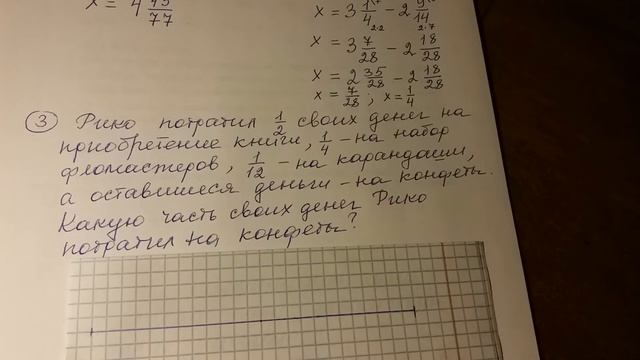 x = 4 45/77
x = 3 1/4 - 2 9/14
x = 3 7/28 - 2 18/28
x = 2 35/28 - 2 18/28
x = 7/28 ; x = 1/4
③ Рико потратил 1/2 своих денег на
приобретение книги, 1/4 - на набор
фломастеров, 1/12 - на карандаши,
а оставшиеся деньги - на конфеты.
Какую часть своих денег Рико
потратил на конфеты?